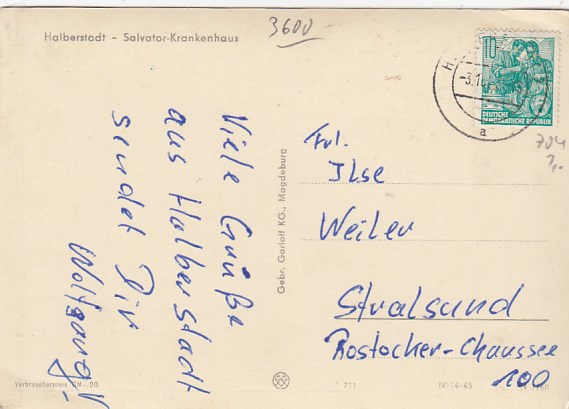 Halberstadt – Salvator-Krankenhaus
3600
10
DEUTSCHE
DEMOKRATISCHE REPUBLIK
a
704
Viele Grüße
aus Halberstadt
sendet Dir
Wolfgang
Gebr. Garloff KG., Magdeburg
Frl.
Ilse
Weiler
Stralsund
Rostocher-Chaussee
100
Verbraucherpreis DM -.20
T 711
IV/14-45